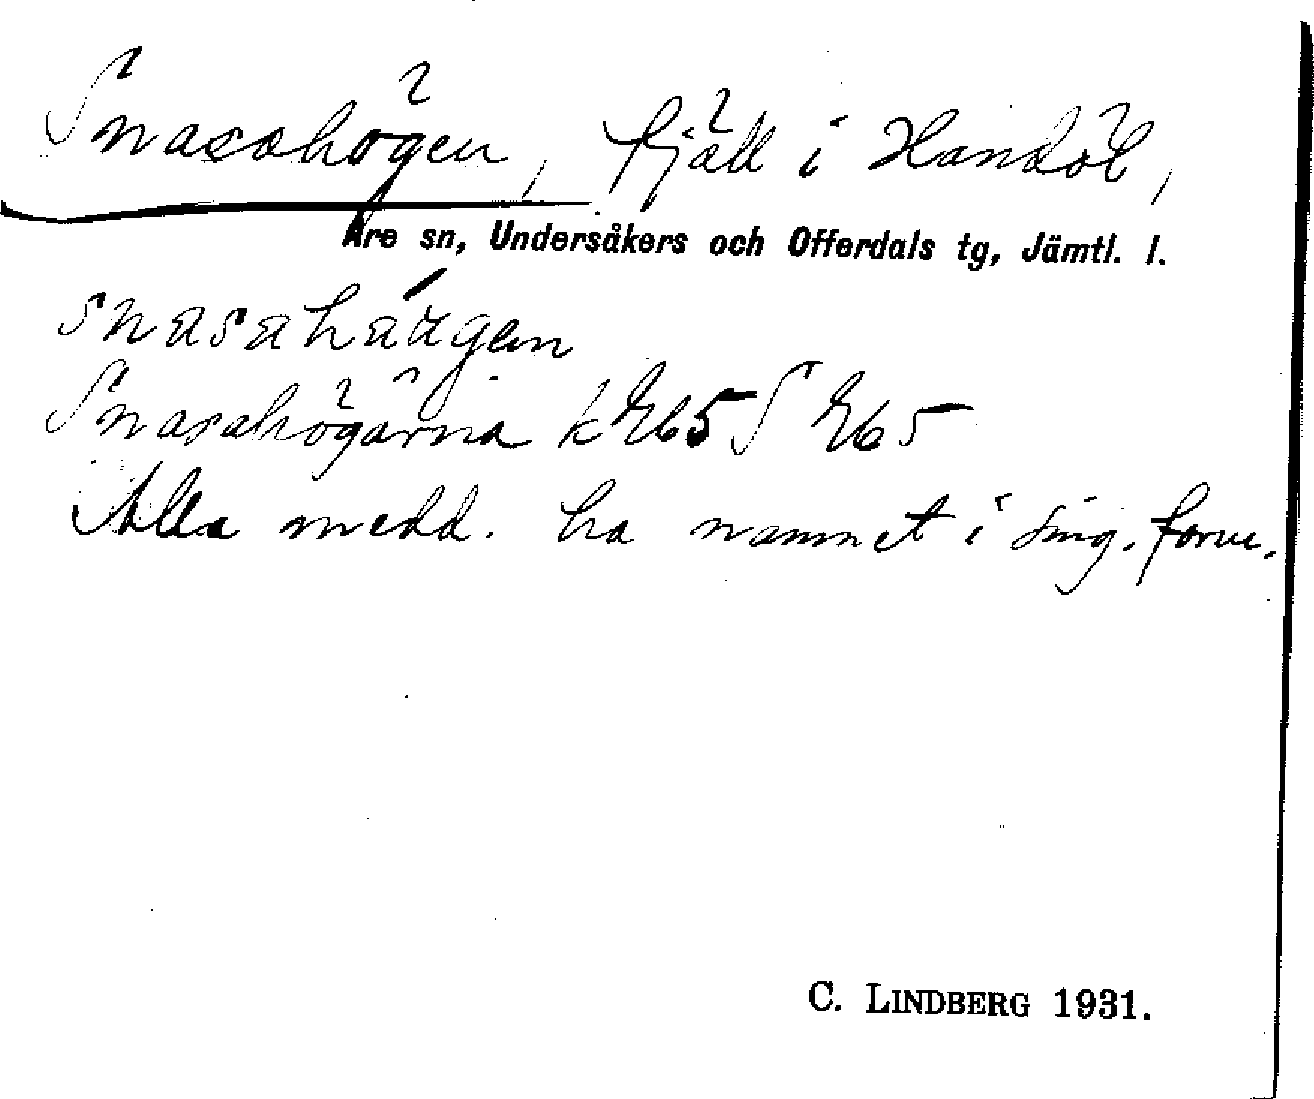 Snasahögen, fjäll i Handöl,
Åre sn, Undersåkers och Offerdals tg, Jämtl. l.
snasahaugen
Snasahögarna k Æ65 S Æ65
Alla medd. ha namnet i sing. form.
C. LINDBERG 1931.